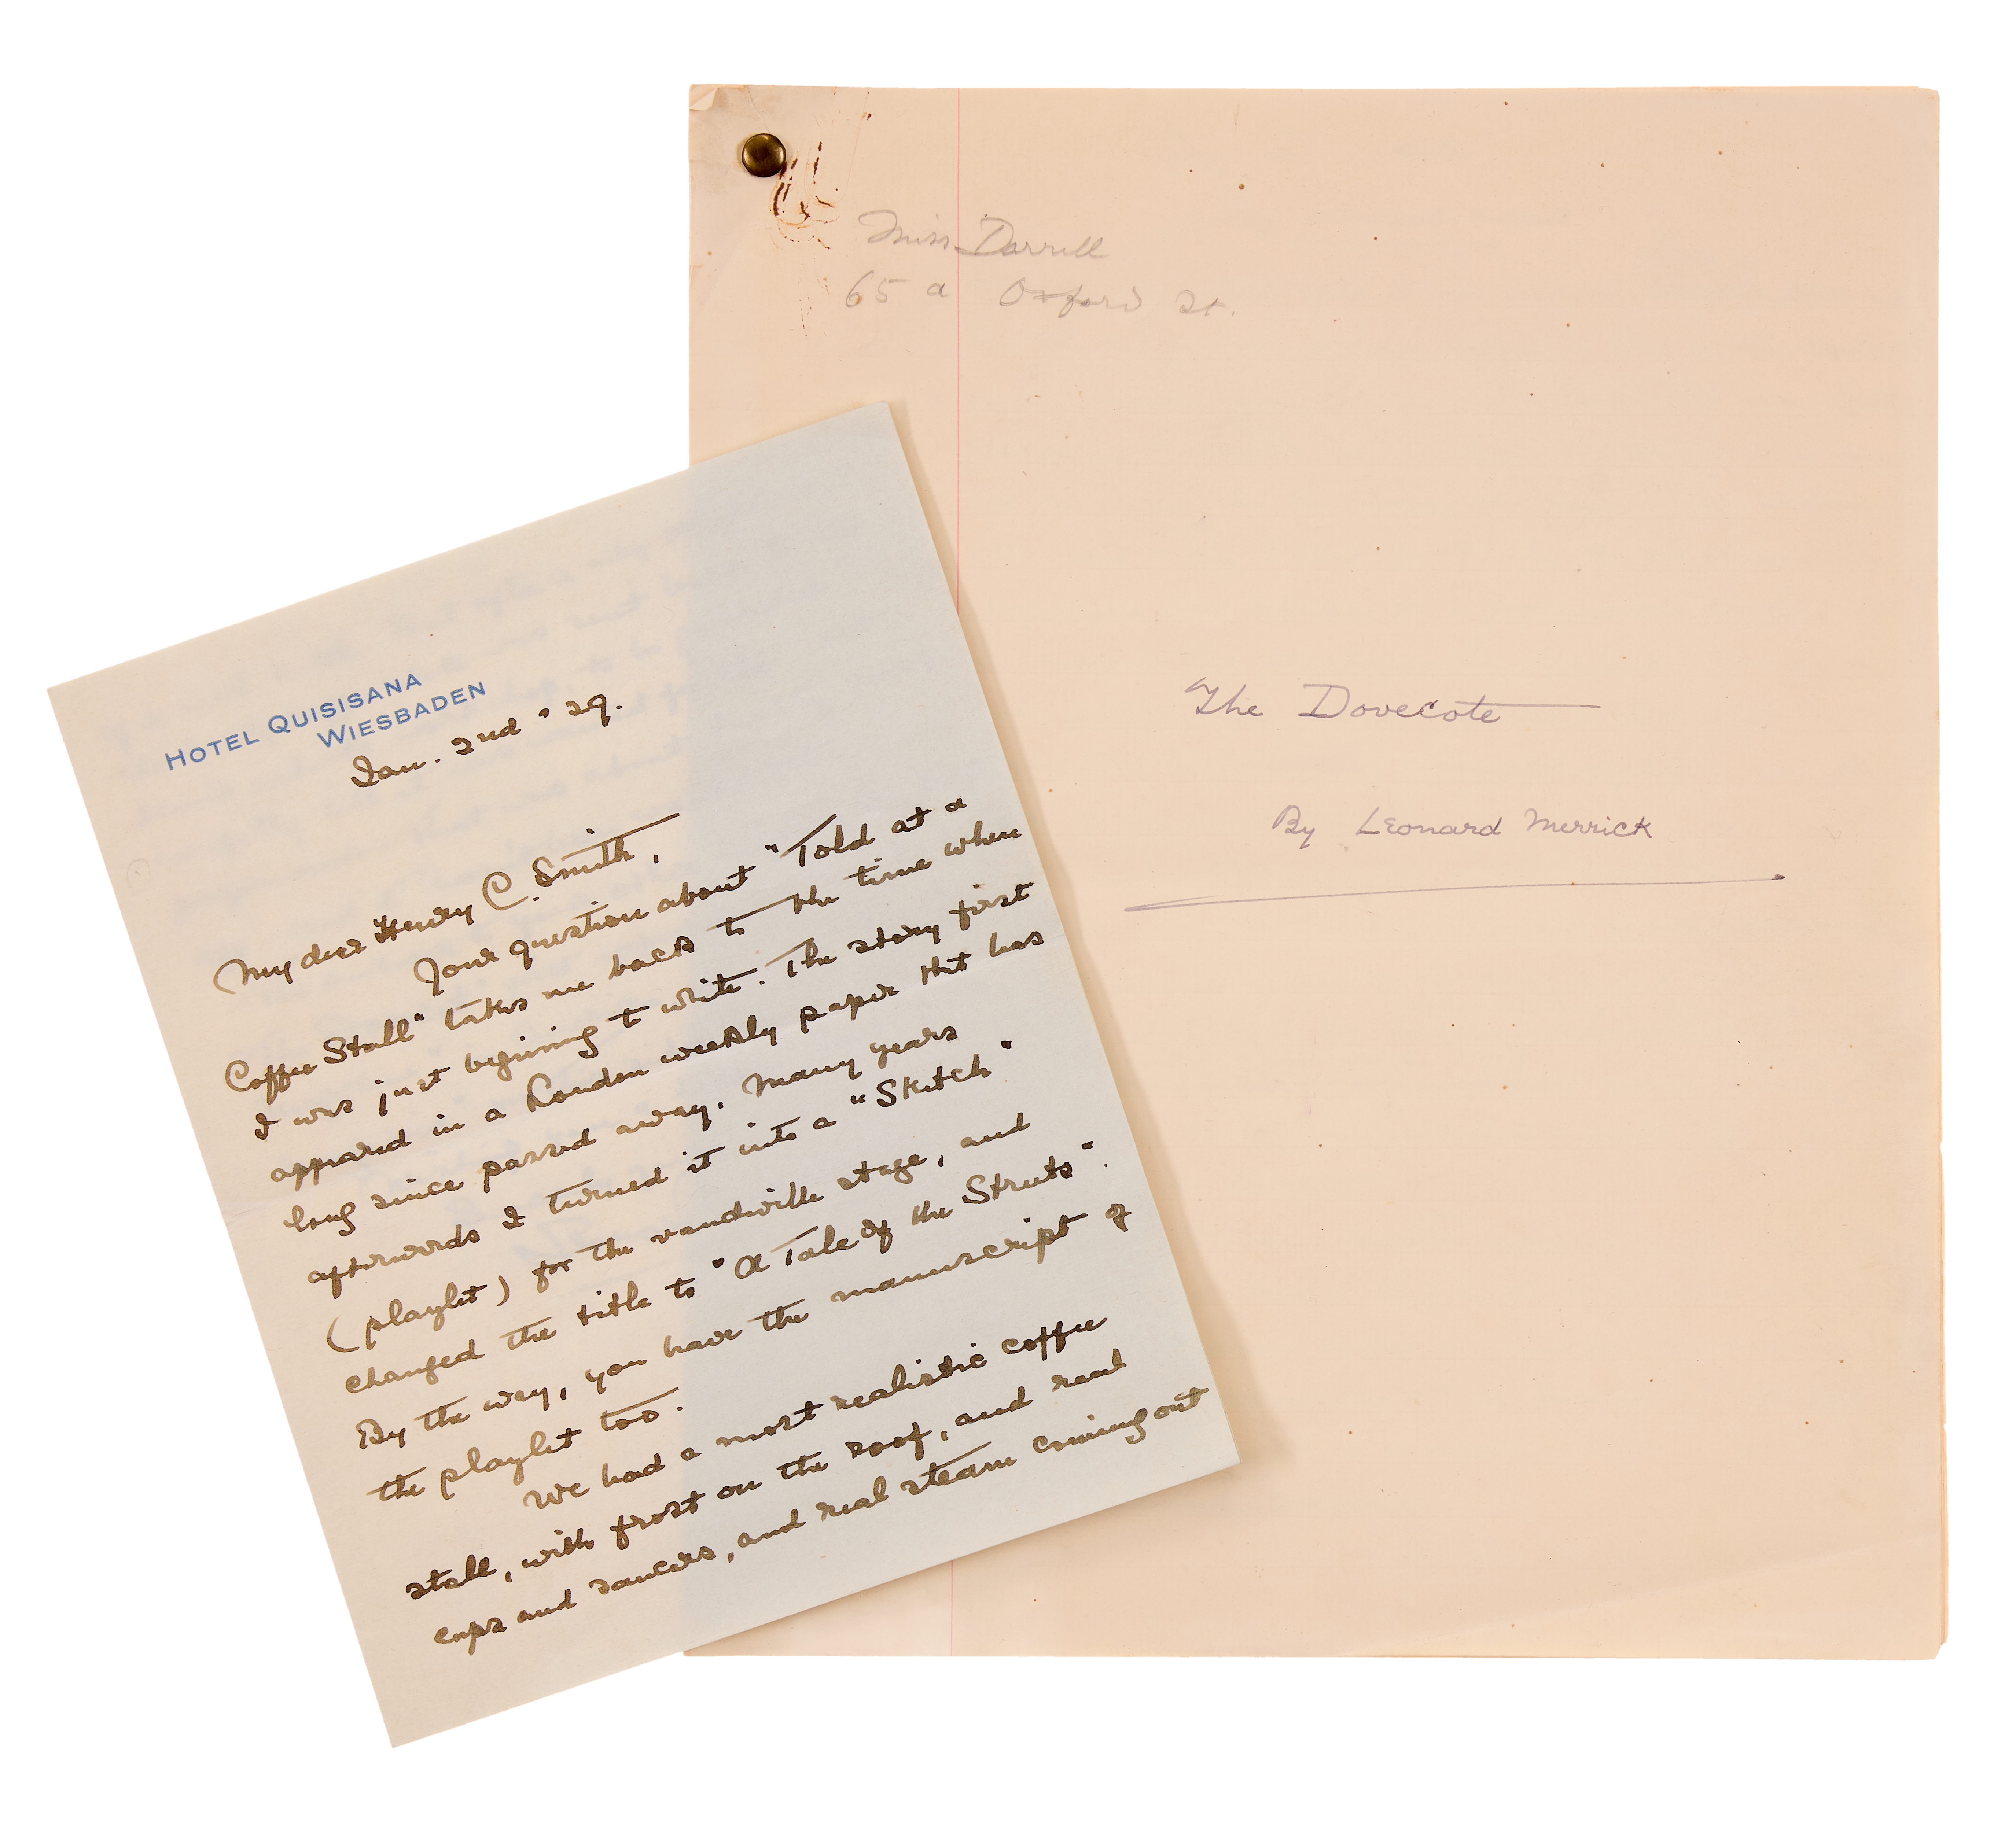 Miss Darrell
65 a Oxford St.
The Dovecote
By Leonard Merrick
HOTEL QUISISANA
WIESBADEN
Jan. 2nd " 29.
My dear Henry C. Smith,
Your question about "Told at a
Coffee Stall" takes me back to the time when
I was just begining to write. The story first
appeared in a London weekly paper that has
long since passed away. Many years
afterwards I turned it into a "Sketch"
(playlet) for the vaudeville stage, and
changed the title to "A Tale of the Streets".
By the way, you have the manuscript of
the playlet too.
We had a most realistic coffee
stall, with frost on the roof, and real
cups and saucers, and real steam coming out